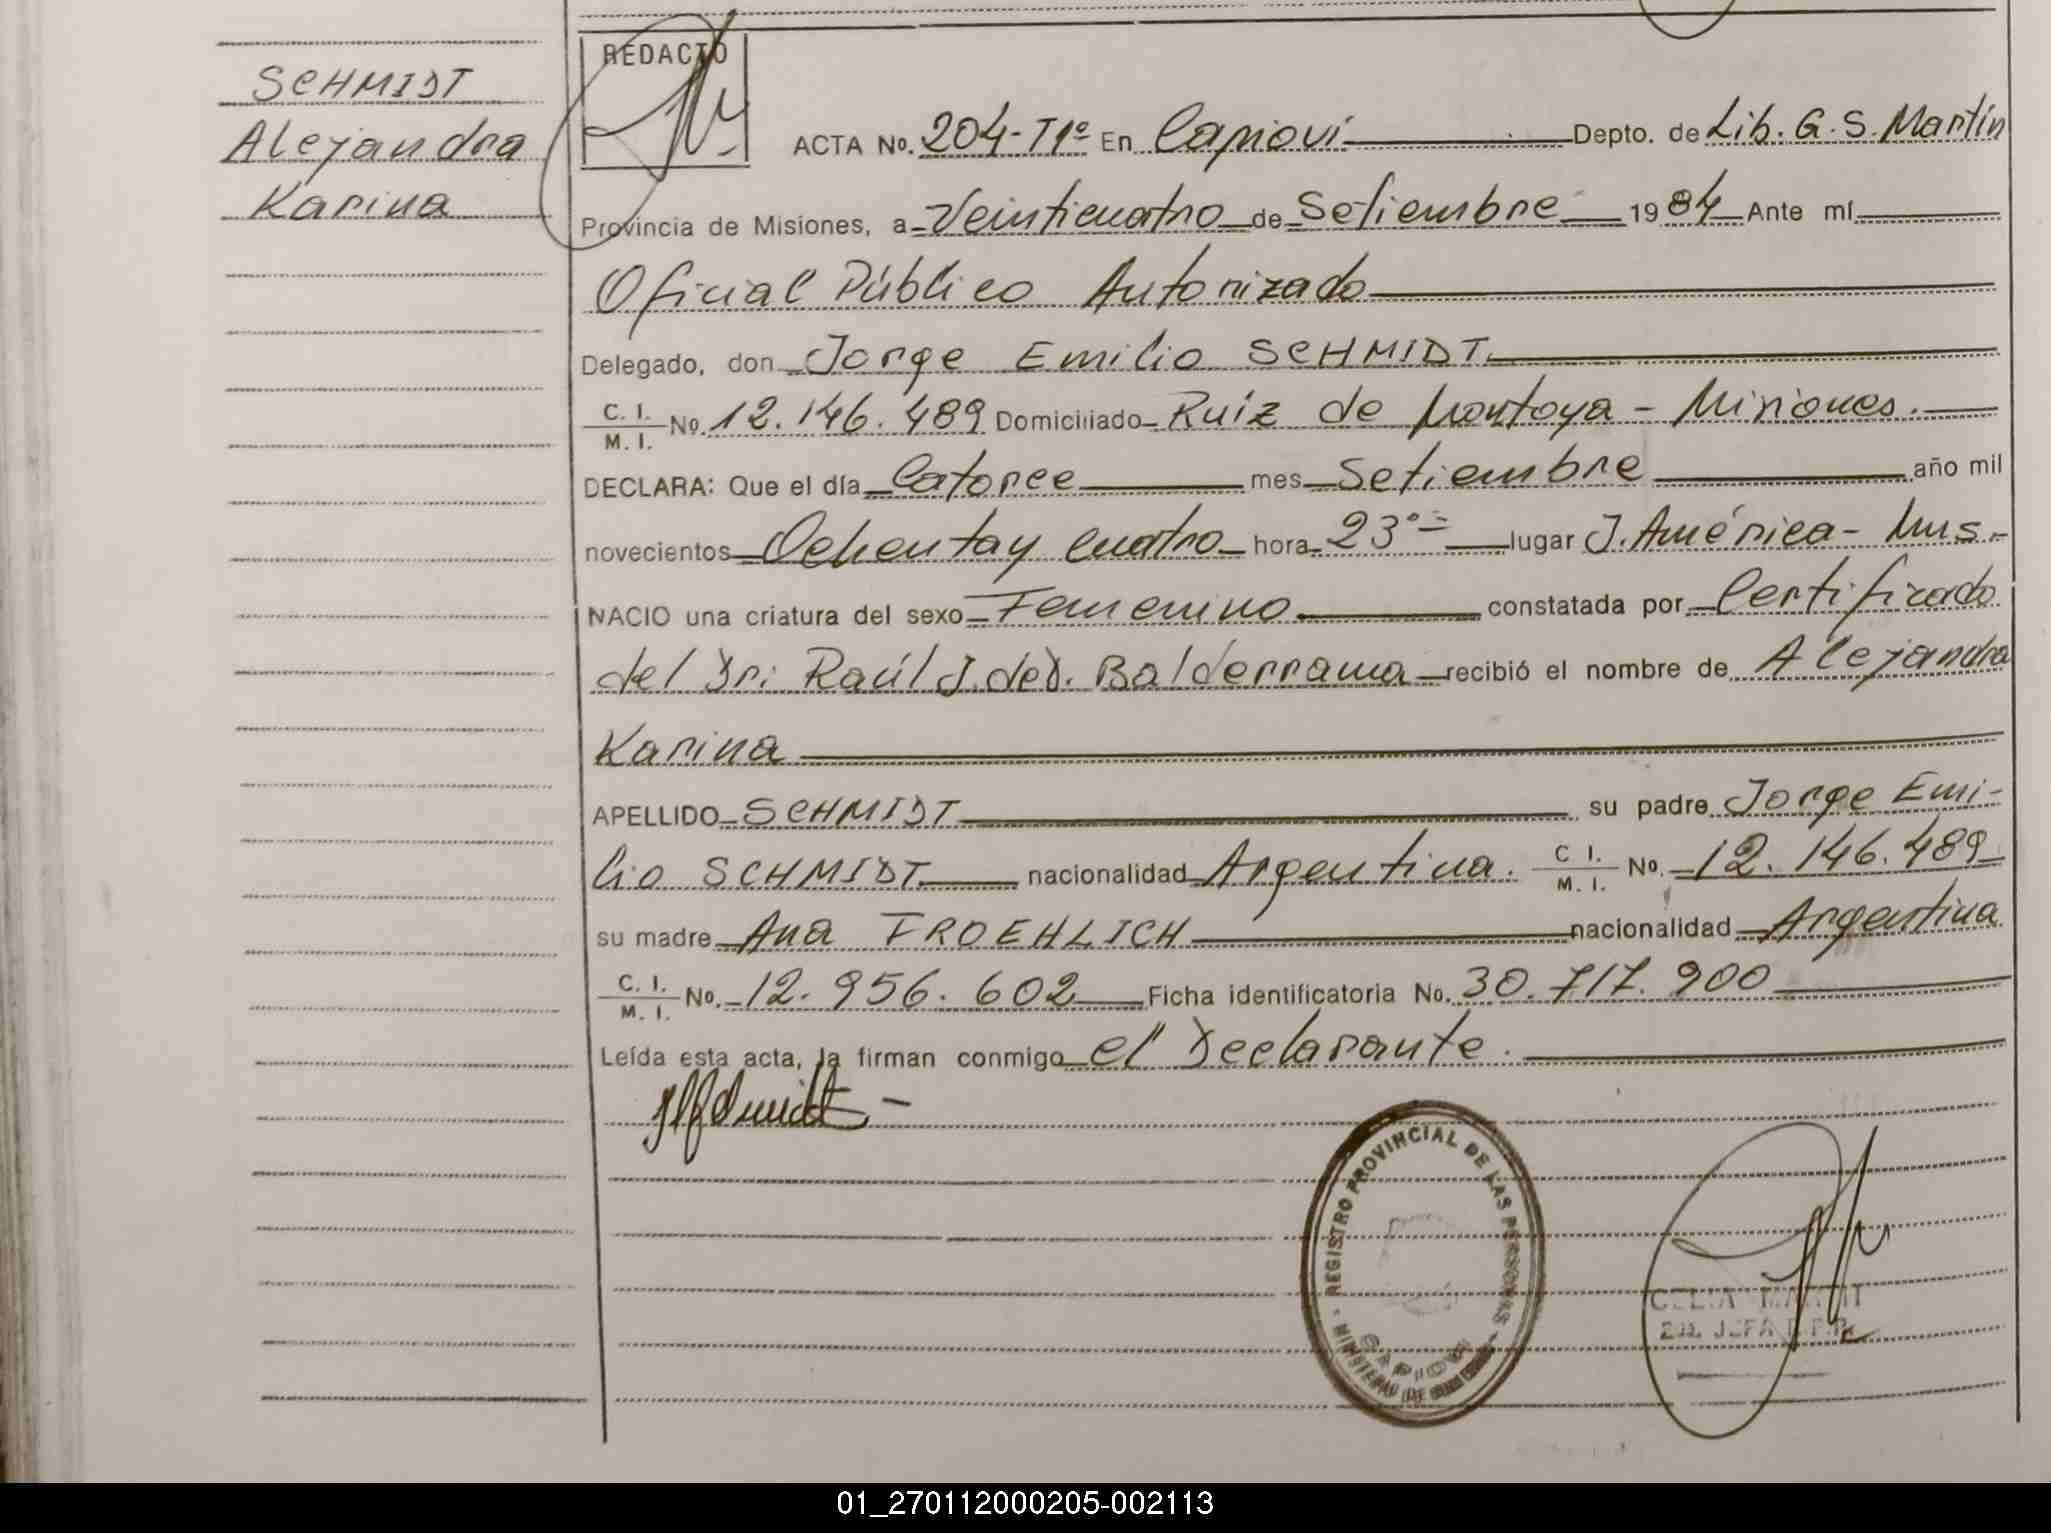 SCHMIDT
Alejandra
Karina
REDACTO
ACTA No. 204-Tlo En Capioví Depto. de Lib. G. S. Martín
Provincia de Misiones, a Veinticuatro de Setiembre 1984 Ante mí
Oficial Público Autorizado
Delegado, don Jorge Emilio SCHMIDT.
C. I. / M. I. No. 12.146.489 Domiciliado Ruíz de Montoya - Misiones.
DECLARA: Que el día Catorce mes Setiembre año mil
novecientos Ochenta y cuatro hora 23°= lugar J. América - Mns.-
NACIO una criatura del sexo Femenino constatada por Certificado
del Dr: Raúl J. de D. Balderrama recibió el nombre de Alejandra
Karina
APELLIDO SCHMIDT su padre Jorge Emi-
lio SCHMIDT nacionalidad Argentina. C I. / M. I. No. 12.146.489
su madre Ana FROEHLICH nacionalidad Argentina
C. I. / M. I. No. 12.956.602 Ficha identificatoria No. 30.717.900
Leída esta acta, la firman conmigo el Declarante.
REGISTRO PROVINCIAL DE LAS PERSONAS
MINISTERIO DE
CAPIOVI
CELIA
2da. JEFA R.P.P.
01_270112000205-002113